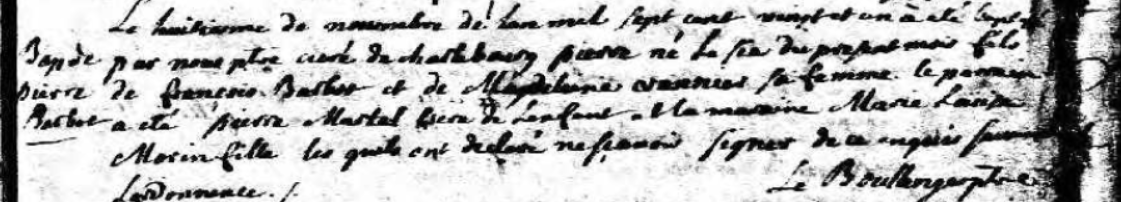 Le huitieme de novembre de l'an mil sept cent vingt et un a été baptisé
Bap. de par nous ptre curé de charlebourg pierre né le 6 du present mois fils
pierre de françois Barbot et de Magdeleine sa femme. le parrain
Barbot a été pierre Martel frere de l'enfant et la maraine Marie Louise
Morin fille les quels ont declaré ne sçavoir signer de ce enquis suivant
L'ordonnance ./.
Le Boullenger ptre